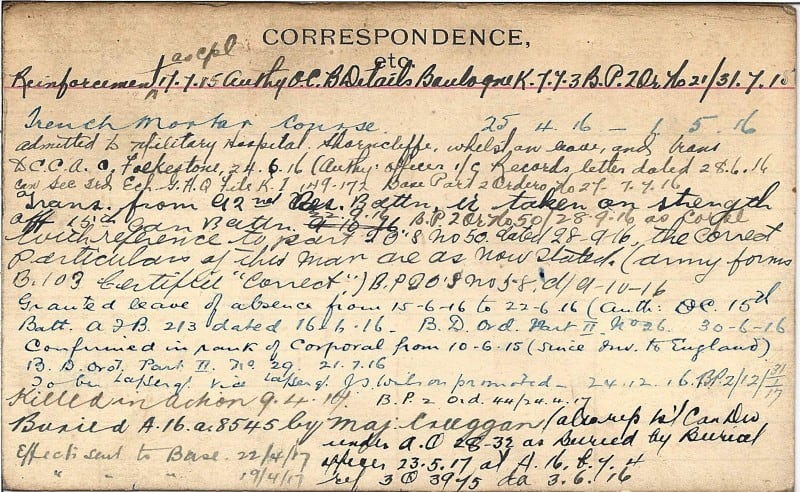 CORRESPONDENCE,
etc.
as cpl
Reinforcement 17.7.15 Authy O.C. B Details Boulogne K.7.7.3 B.P.2 Or. No 21/31.7.15
Trench Mortar Course. 25 4.16 – 1 5.16
admitted to Military Hospital. Shorncliffe, whilst on leave, and trans
to C.C.A.C. Folkestone, 24.6.16 (Authy: officer i/c Records letter dated 28.6.16
Can Sec 3rd Ech. G.H.Q File K.1 149-172 Base Part 2 Orders No 27 7.7.16
Trans. from 92nd Res. Battn. is taken on strength
off 15th Can Battn. 9-10-16 B.P.2 Or No 50/28-9-16 as Corpl
22.9.16
With reference to part 2 O"S No 50. dated 28-9-16, the correct
Particulars of this man are as now stated. (army forms
B.103 Certified "Correct".) B.P.2 O'S No 58. d/9-10-16
Granted leave of absence from 15-6-16 to 22-6-16 (Auth: OC. 15th
Batt. A.F.B. 213 dated 16.6.16. B.D. Ord. Part II. No 26. 30-6-16
Confirmed in rank of Corporal from 10-6-15 (since inv. to England)
B.D. Ord. Part II. No 29. 21.7.16
To be L/a/Sergt. vice L/a/Sergt. J.S. Wilson promoted – 24.12.16. B.P.2/12/31/1/17
Killed in action 9.4.17 B.P.2 Ord. 44/24.4.17
Buried A.16.a.8545 by Maj. Creeggan (also rep by 1st Can Div
under A.O 28-32 as Buried by Burial
Effects sent to Base. 22/4/17
officer 23.5.17 at A.16.b.7.4
" " " 19/4/17
ref 3 @ 3945 da 3.6.16